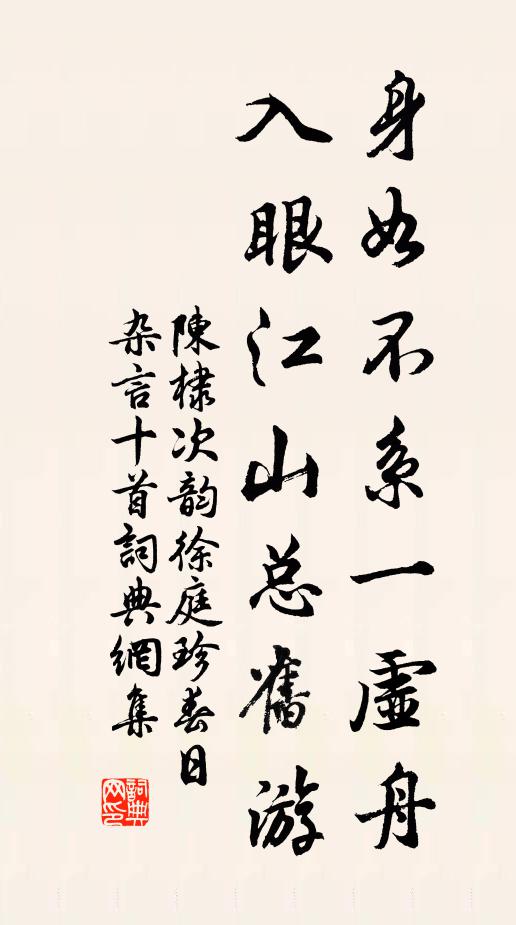 身如不系一虚舟
入眼江山总舊游
陳棣次韵徐庭珍春日
杂言十首詞典網集
詞典网印